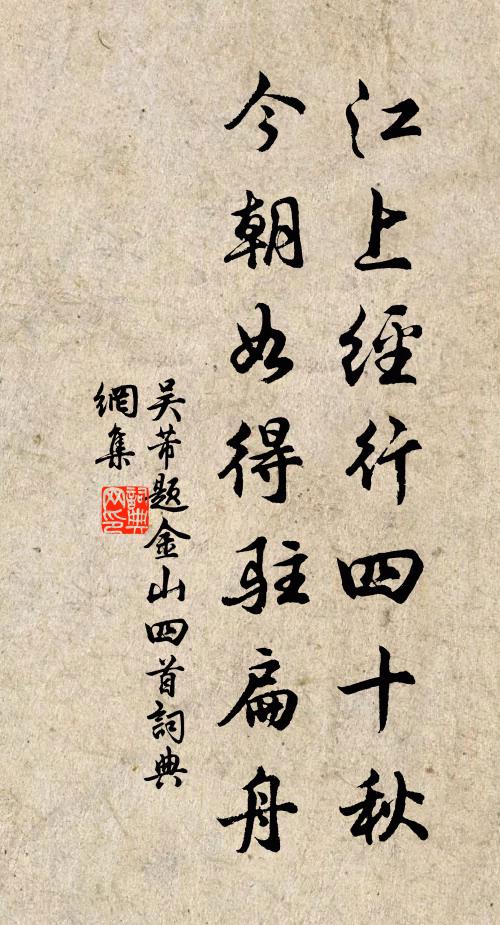 江上經行四十秋
今朝始得駐扁舟
吴芾题金山四首詞典
網集
詞典
网印